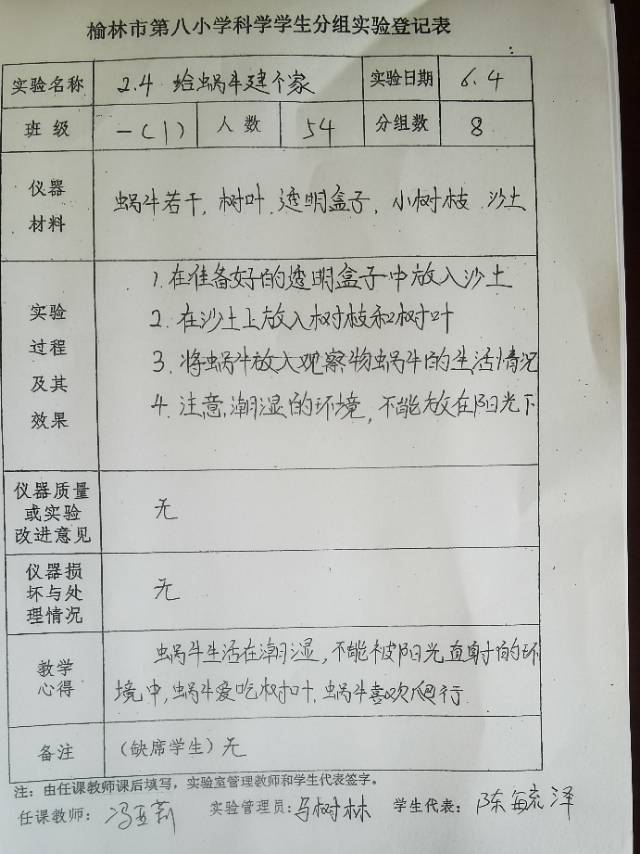 榆林市第八小学科学学生分组实验登记表
实验名称 2.4 给蜗牛建个家 实验日期 6.4
班 级 一(1) 人 数 54 分组数 8
仪器
材料
蜗牛若干, 树叶. 透明盒子, 小树枝 沙土
实验
过程
及其
效果
1. 在准备好的透明盒子中放入沙土
2. 在沙土上放入树枝和树叶
3. 将蜗牛放入观察物蜗牛的生活情况
4. 注意,潮湿的环境, 不能放在阳光下
仪器质量
或实验
改进意见
无
仪器损
坏与处
理情况
无
教学
心得
蜗牛生活在潮湿, 不能被阳光直射的环
境中, 蜗牛爱吃树叶, 蜗牛喜欢爬行
备注 (缺席学生) 无
注: 由任课教师课后填写, 实验室管理教师和学生代表签字。
任课教师: 冯亚莉 实验管理员: 马树林 学生代表: 陈毓泽